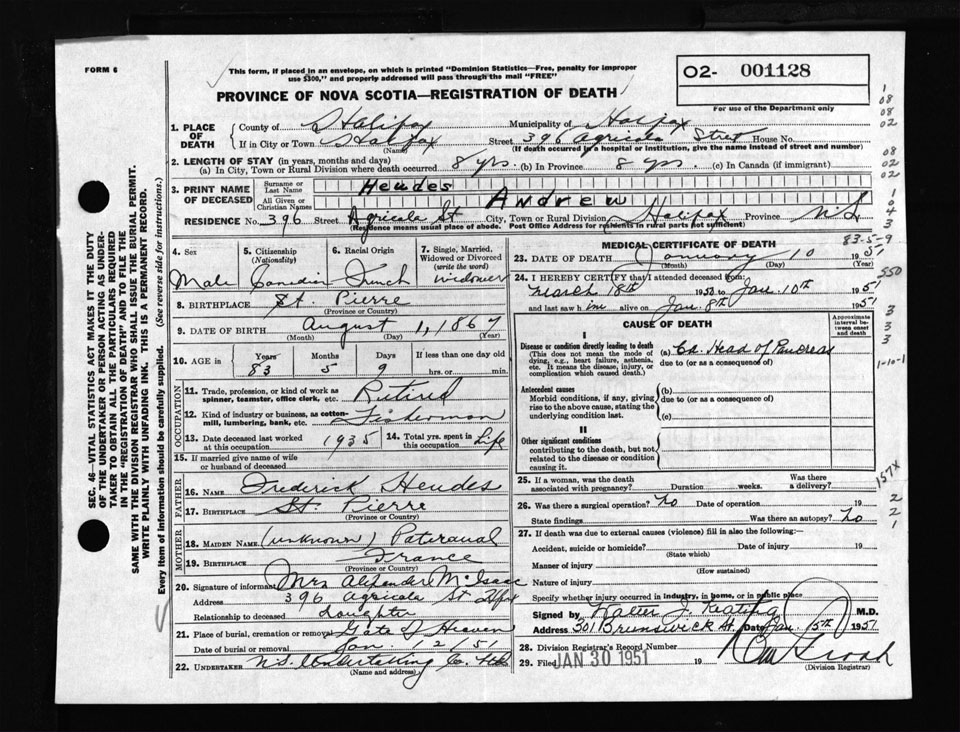 FORM 6
This form, if placed in an envelope, on which is printed "Dominion Statistics—Free, penalty for improper
use $300," and properly addressed will pass through the mail "FREE"
PROVINCE OF NOVA SCOTIA—REGISTRATION OF DEATH
02- 001128
For use of the Department only
SEC. 46—VITAL STATISTICS ACT MAKES IT THE DUTY
OF THE UNDERTAKER OR PERSON ACTING AS UNDER-
TAKER TO OBTAIN ALL THE PARTICULARS REQUIRED
IN THE "REGISTRATION OF DEATH" AND TO FILE THE
SAME WITH THE DIVISION REGISTRAR WHO SHALL ISSUE THE BURIAL PERMIT.
WRITE PLAINLY WITH UNFADING INK. THIS IS A PERMANENT RECORD.
Every item of information should be carefully supplied. (See reverse side for instructions.)
1. PLACE OF DEATH
County of Halifax Municipality of Halifax
If in City or Town Halifax Street 396 Agricola Street House No.
(Name) (If death occurred in a hospital or institution, give the name instead of street and number)
2. LENGTH OF STAY (in years, months and days)
(a) In City, Town or Rural Division where death occurred 8 yrs. (b) In Province 8 yrs. (c) In Canada (if immigrant)
3. PRINT NAME OF DECEASED
Surname or Last Name Heudes
All Given or Christian Names Andrew
RESIDENCE No. 396 Street Agricola St City, Town or Rural Division Halifax Province N.S.
(Residence means usual place of abode. Post Office Address for residents in rural parts not sufficient)
4. Sex Male
5. Citizenship (Nationality) Canadian
6. Racial Origin French
7. Single, Married, Widowed or Divorced (write the word) Widower
8. BIRTHPLACE St. Pierre
(Province or Country)
9. DATE OF BIRTH August 1, 1867
(Month) (Day) (Year)
10. AGE in Years 83 Months 5 Days 9 If less than one day old hrs. or min.
OCCUPATION
11. Trade, profession, or kind of work as spinner, teamster, office clerk, etc. Retired
12. Kind of industry or business, as cotton-mill, lumbering, bank, etc. Fisherman
13. Date deceased last worked at this occupation 1935
14. Total yrs. spent in this occupation Life
15. If married give name of wife or husband of deceased
FATHER
16. NAME Frederick Heudes
17. BIRTHPLACE St. Pierre
(Province or Country)
MOTHER
18. MAIDEN NAME (unknown)
19. BIRTHPLACE France
(Province or Country)
20. Signature of informant Mrs Alexander McIsaac
Address 396 Agricola St Hfx
Relationship to deceased Daughter
21. Place of burial, cremation or removal Gate of Heaven
Date of burial or removal Jan. 12 51
22. UNDERTAKER N.S. Undertaking Co. Ltd
(Name and address)
MEDICAL CERTIFICATE OF DEATH
83-5-9
23. DATE OF DEATH January 10 1951
(Month) (Day)
24. I HEREBY CERTIFY that I attended deceased from:
March 18th 1950 to Jan. 10th 1951
and last saw him alive on Jan 8th 1951
CAUSE OF DEATH
Approximate interval between onset and death
I
Disease or condition directly leading to death
(This does not mean the mode of dying, e.g., heart failure, asthenia, etc. It means the disease, injury, or complication which caused death.)
(a) Ca. Head of Pancreas
due to (or as a consequence of)
Antecedent causes
Morbid conditions, if any, giving rise to the above cause, stating the underlying condition last.
(b)
due to (or as a consequence of)
(c)
II
Other significant conditions
contributing to the death, but not related to the disease or condition causing it.
25. If a woman, was the death associated with pregnancy? Duration weeks. Was there a delivery?
26. Was there a surgical operation? No Date of operation 19
State findings Was there an autopsy? No
27. If death was due to external causes (violence) fill in also the following:—
Accident, suicide or homicide? Date of injury 19
(State which)
Manner of injury
(How sustained)
Nature of injury
Specify whether injury occurred in industry, in home, or in public place
Signed by Walter J. Keating M.D.
Address 301 Brunswick St. Date Jan 15th 1951
28. Division Registrar's Record Number
29. Filed JAN 30 1951 19
(Division Registrar)
1
08
08
02
08
02
02
1
0
4
3
550
3
3
3
1-10-1
157X
2
2
1